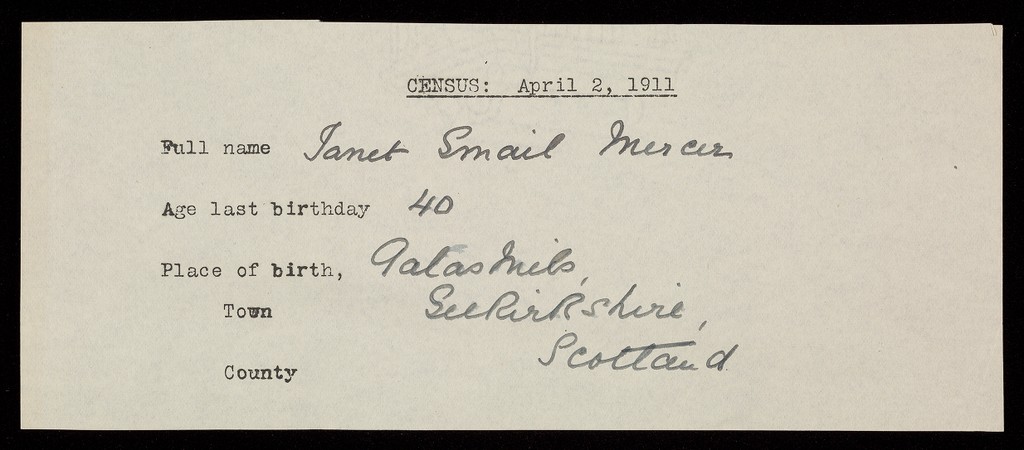 CENSUS: April 2, 1911
Full name Janet Smail Mercer
Age last birthday 40
Place of birth, Galashiels,
Town Selkirkshire,
Scotland
County